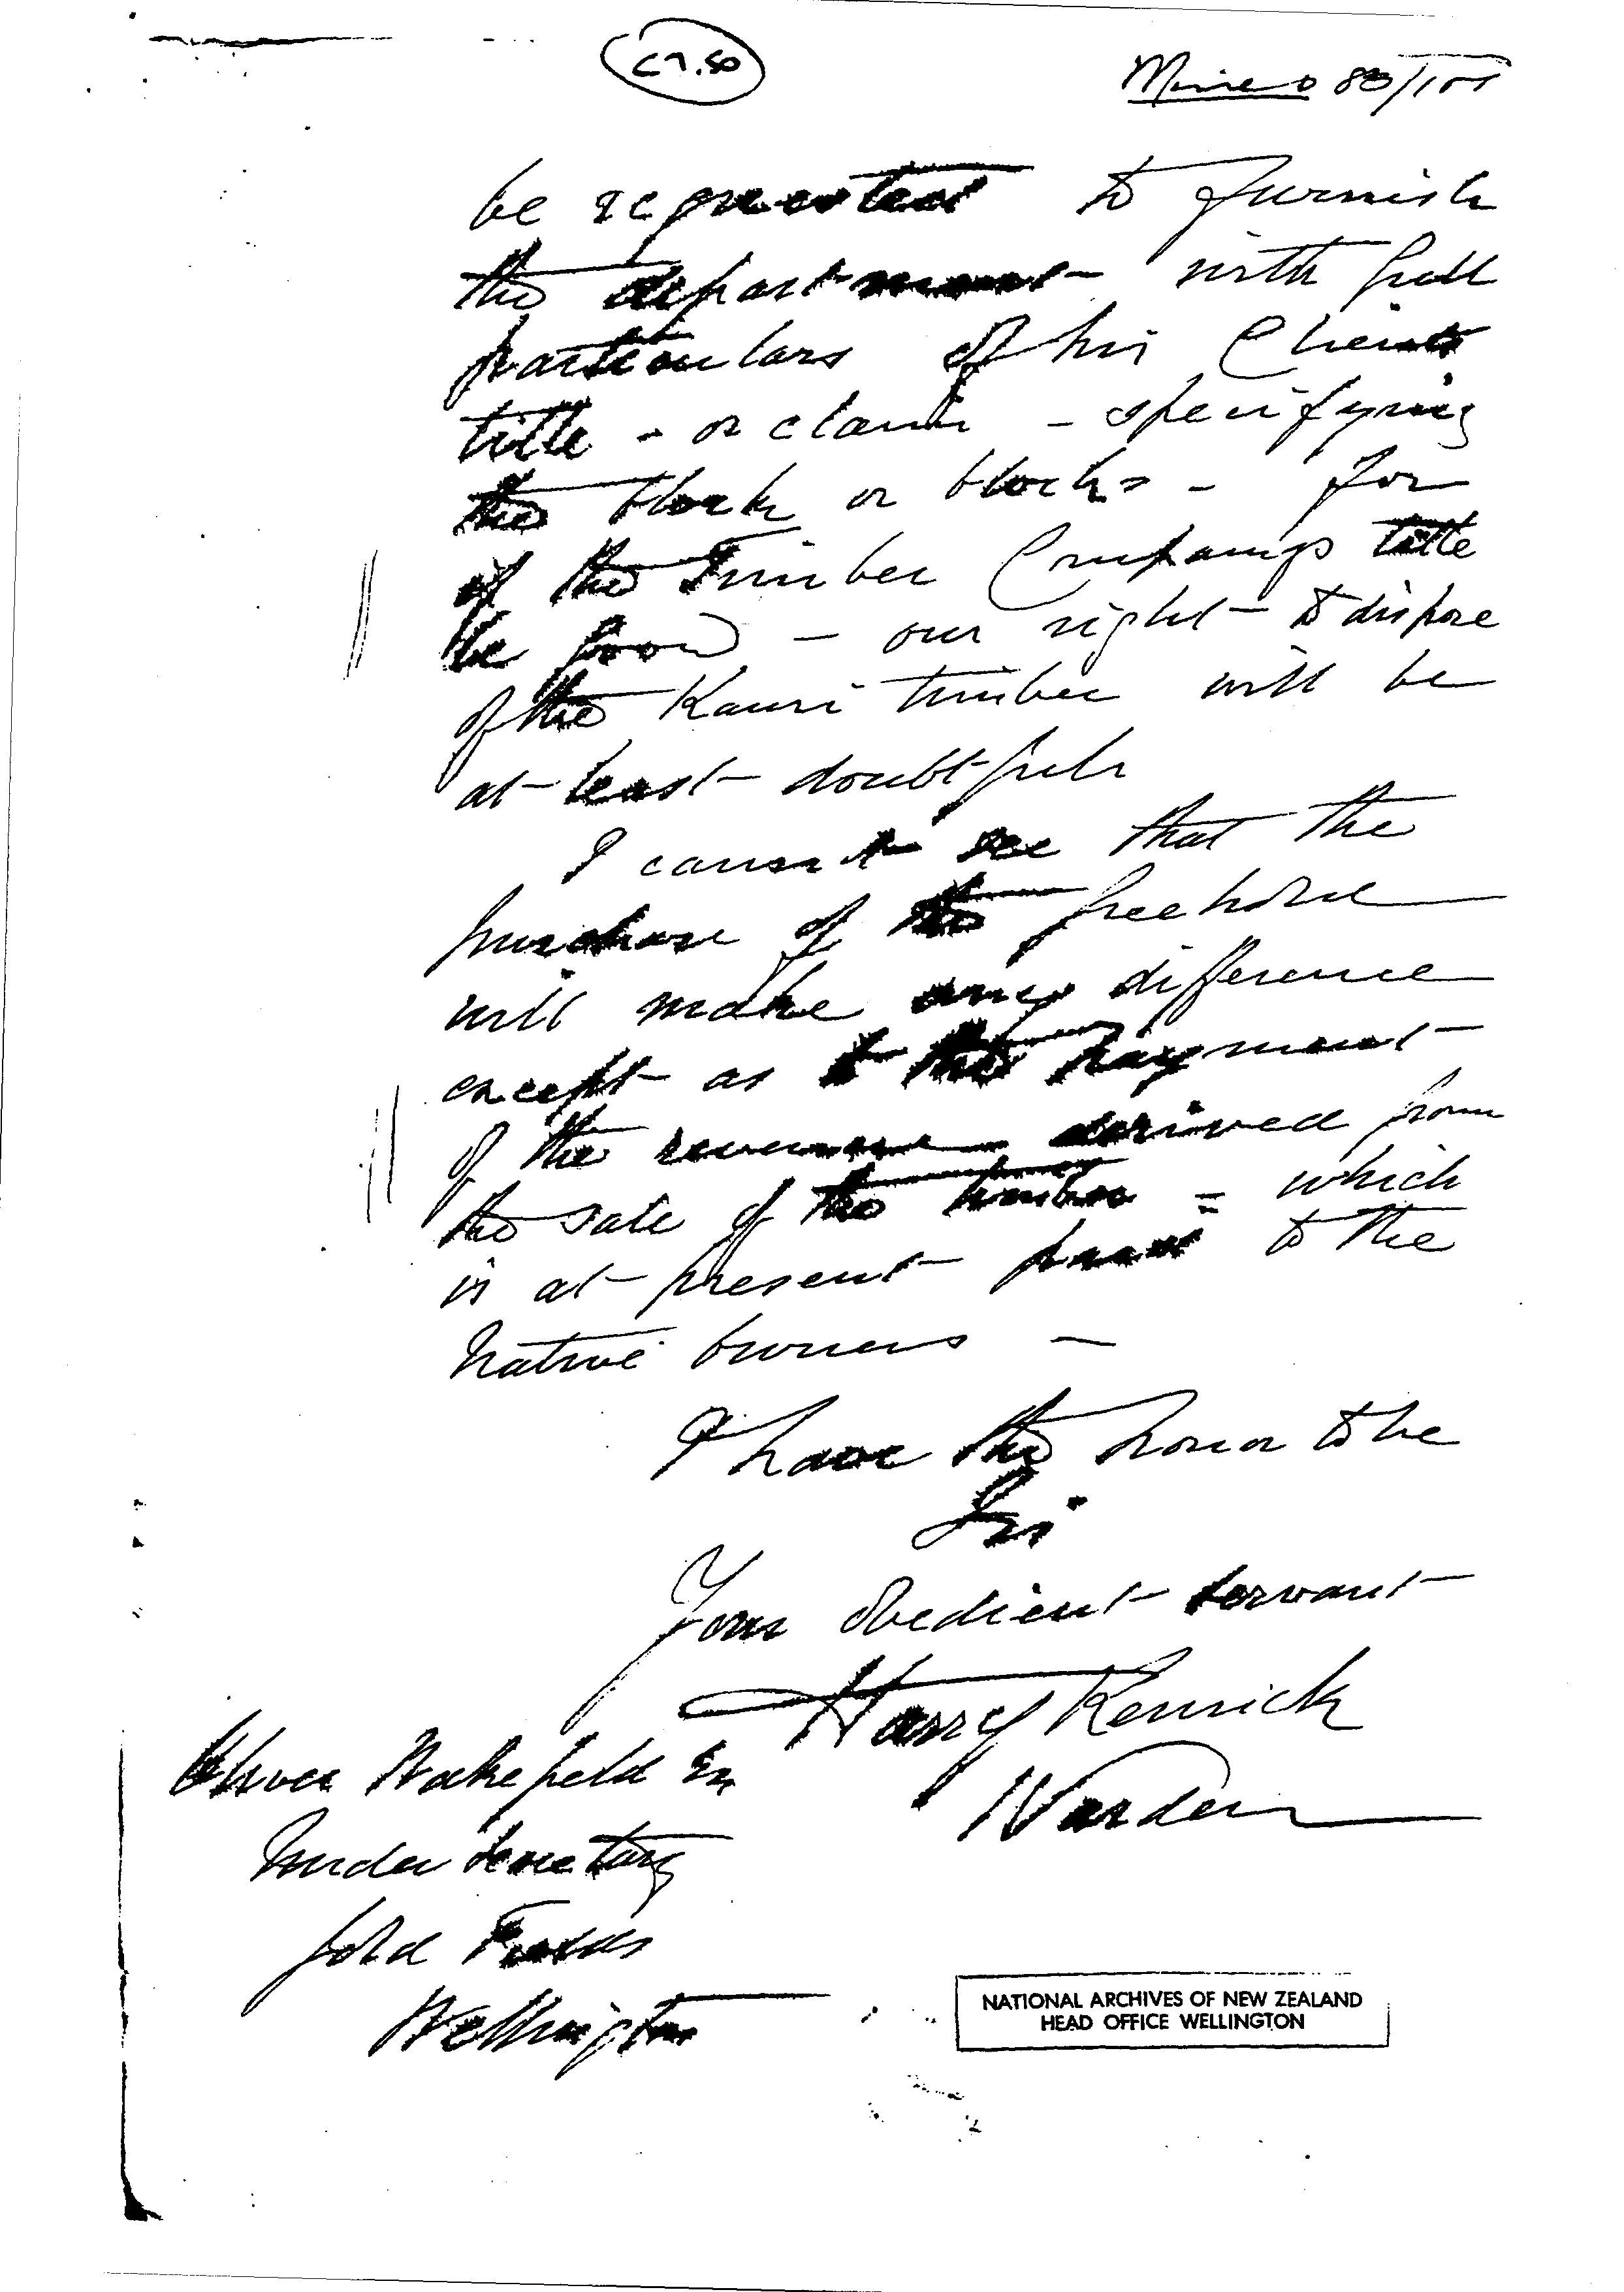 C7.50
Mines 83/
be requested to furnish
the department with full
particulars of his Clients
title - or claim - specifying
the block or blocks - for
if the Timber Companys title
be good - our right to dispose
of the Kauri timber will be
at least doubtful
I cannot see that the
purchase of the freehold
will make any difference
except as to the payment
of the revenue derived from
the sale of the timber - which
is at present paid to the
Native owners -
I have the honor to be
Sir
Your obedient servant
Harry Kenrick
Warden
Oliver Wakefield Esq
Under Secretary
Gold Fields
Wellington
NATIONAL ARCHIVES OF NEW ZEALAND
HEAD OFFICE WELLINGTON